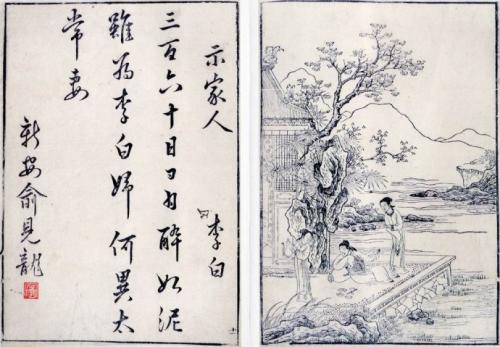 示家人
李白
三百六十日日日醉如泥
雖為李白婦何異太
常妻
新安俞見龍